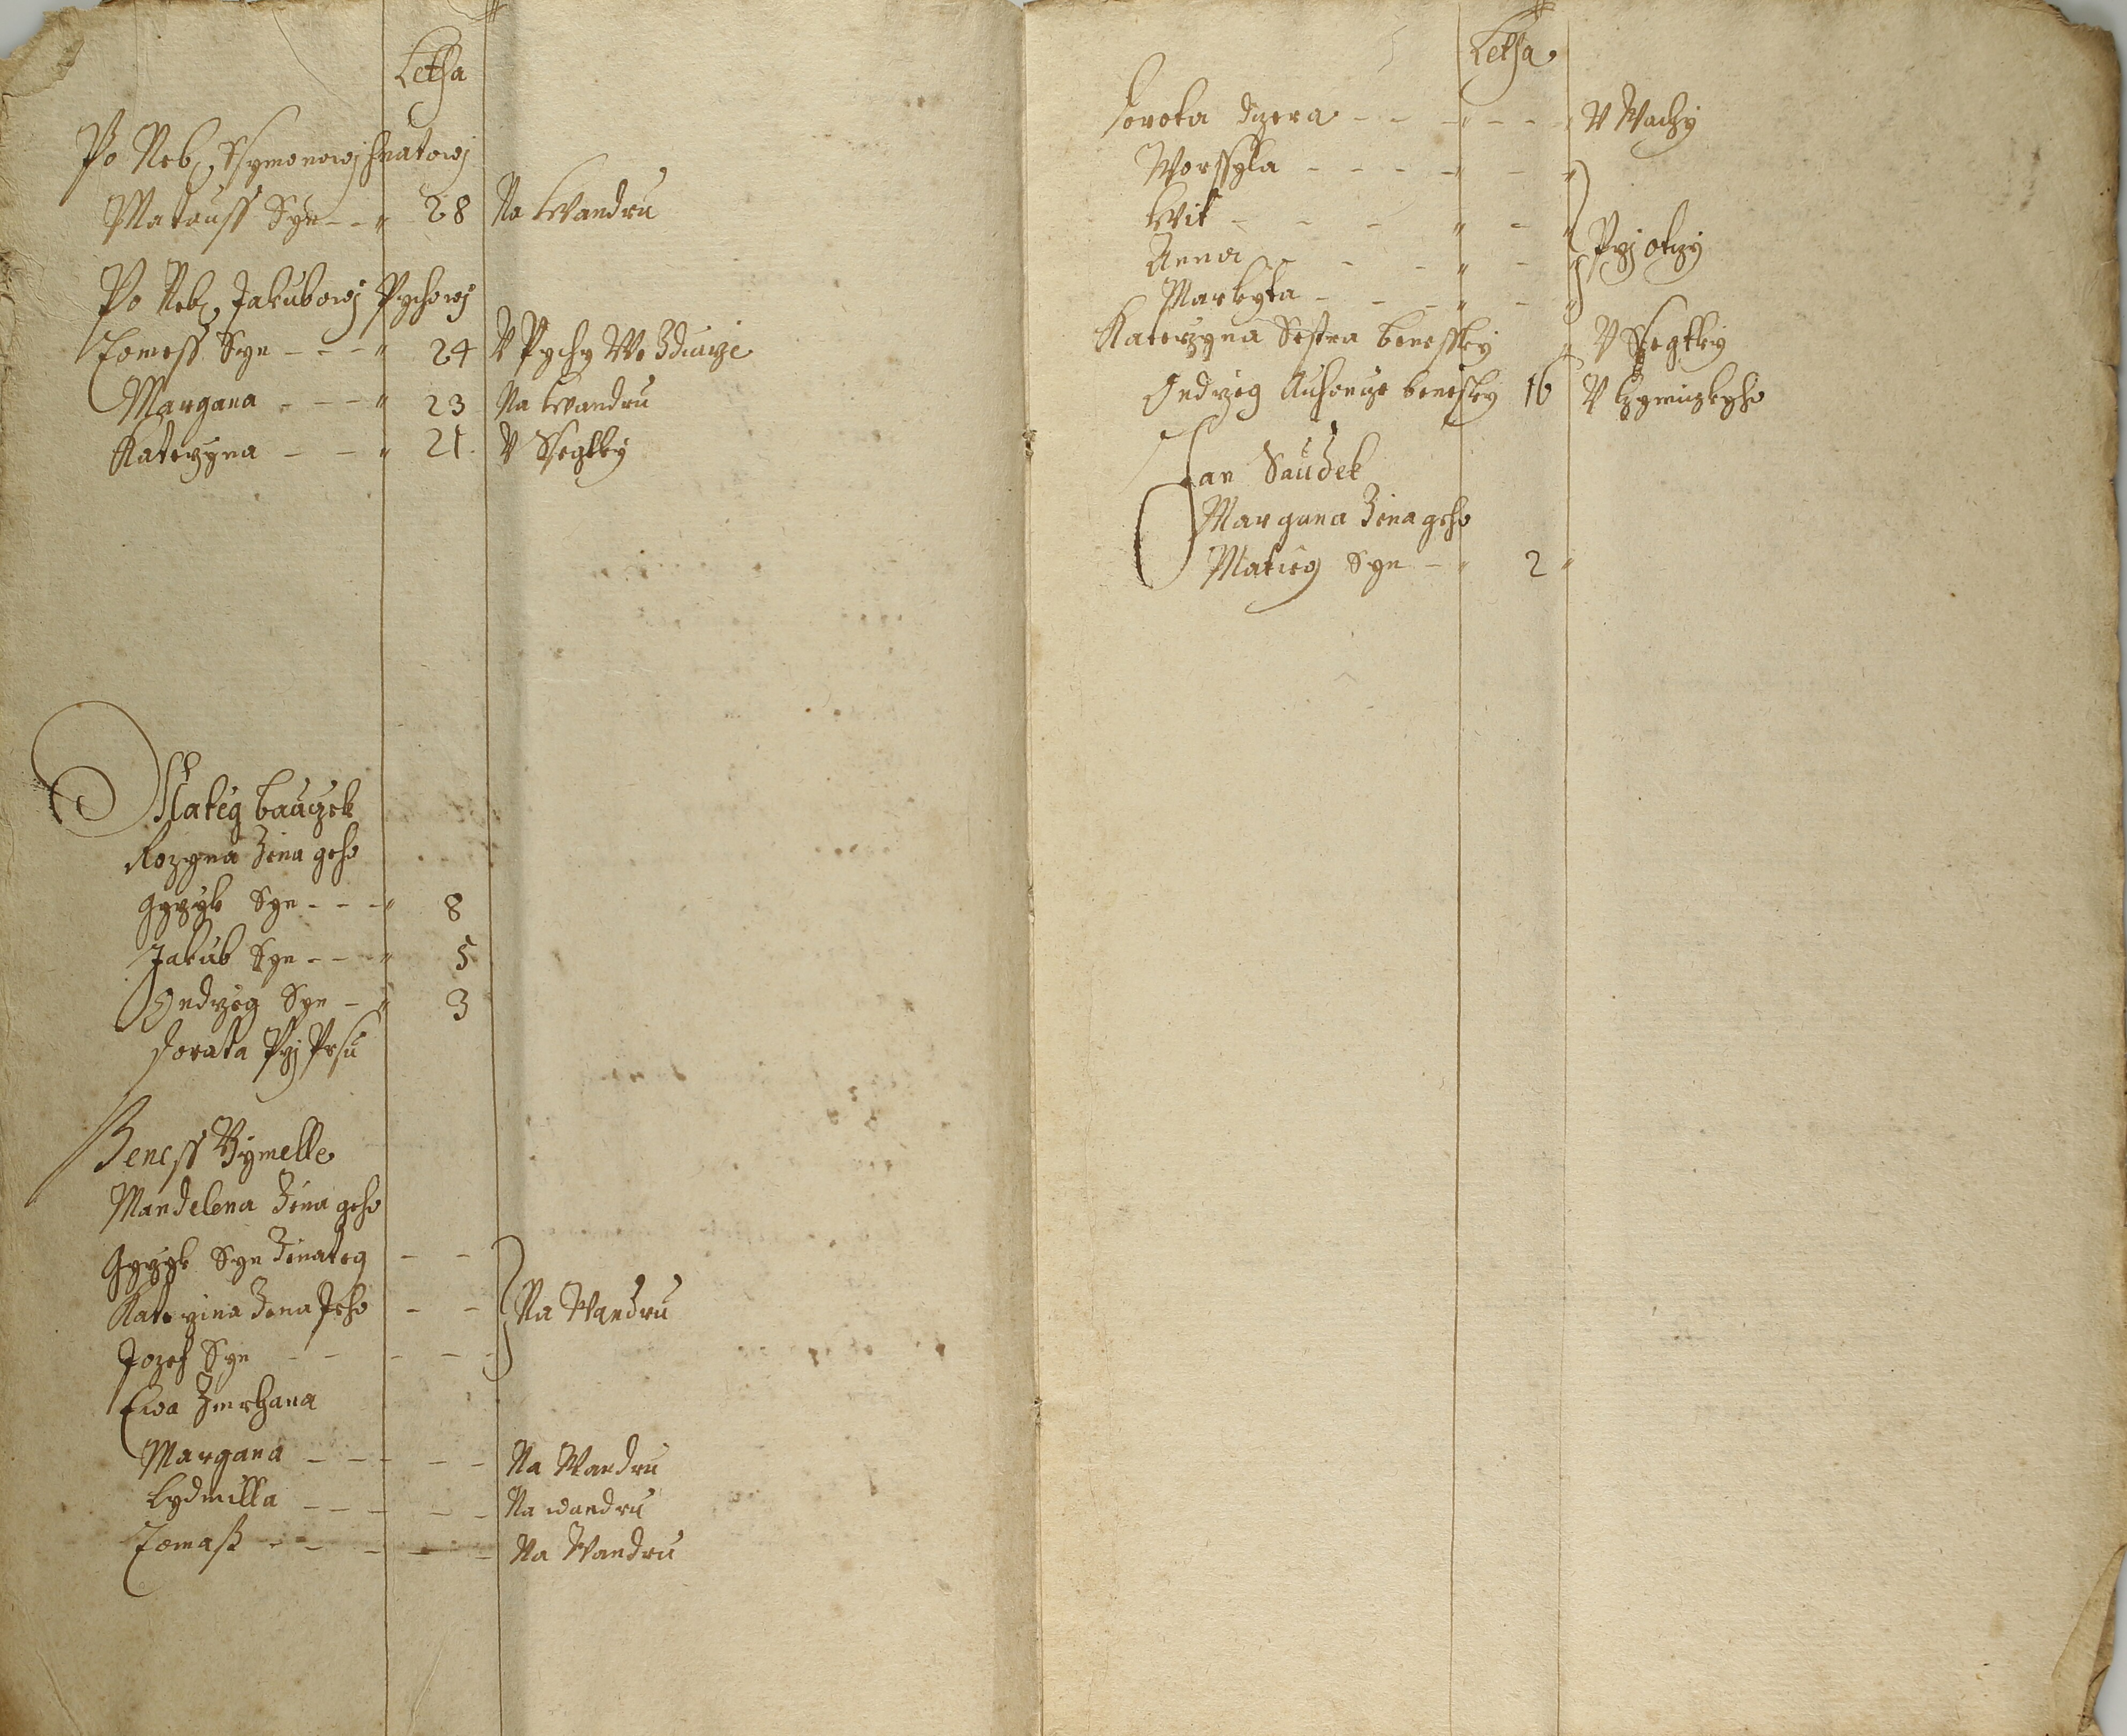 Letha
Po Neb. Ssymonowj Hnatowj
Matauss Syn - - " 28 Na Wandru
Po Neb. Jakubowj Pychowj
Tomess Syn - - - " 24 V Pychy We
Margana - - - " 23 Na Wandru
Katerzyna - - " 21. V Ssegtky
Mateg Bauczek
Rozyna Zena geho
Gyrzyk Syn - - - " 8
Jakub Syn - - - " 5
Ondrzeg Syn - " 3
Dorata Przj Prsu
Beness Bymelle
Mandelena Zena geho
Gyrzyk Syn Zenateg - -
Katerzina Zena Jeho - - Na Wandru
Jozef Syn - - - - -
Ewa Zmrhana
Margana - - - - - Na Wandru
Lydmilla - - - - - Na wandru
Tomass - - - - - Na Wandru
Letha
Dorota Dczera - - - " - - - " V Wachy
Worssyla - - - - " - "
Wit - - - " - "
Anna - - - " - " Przj otczy
Markyta - - - " - "
Katerzyna Sestra Benessky " V Ssegtky
Ondrzeg Benessky 16 V
Jan Saudek
Margana Zena geho
Matieg Syn - " 2 "